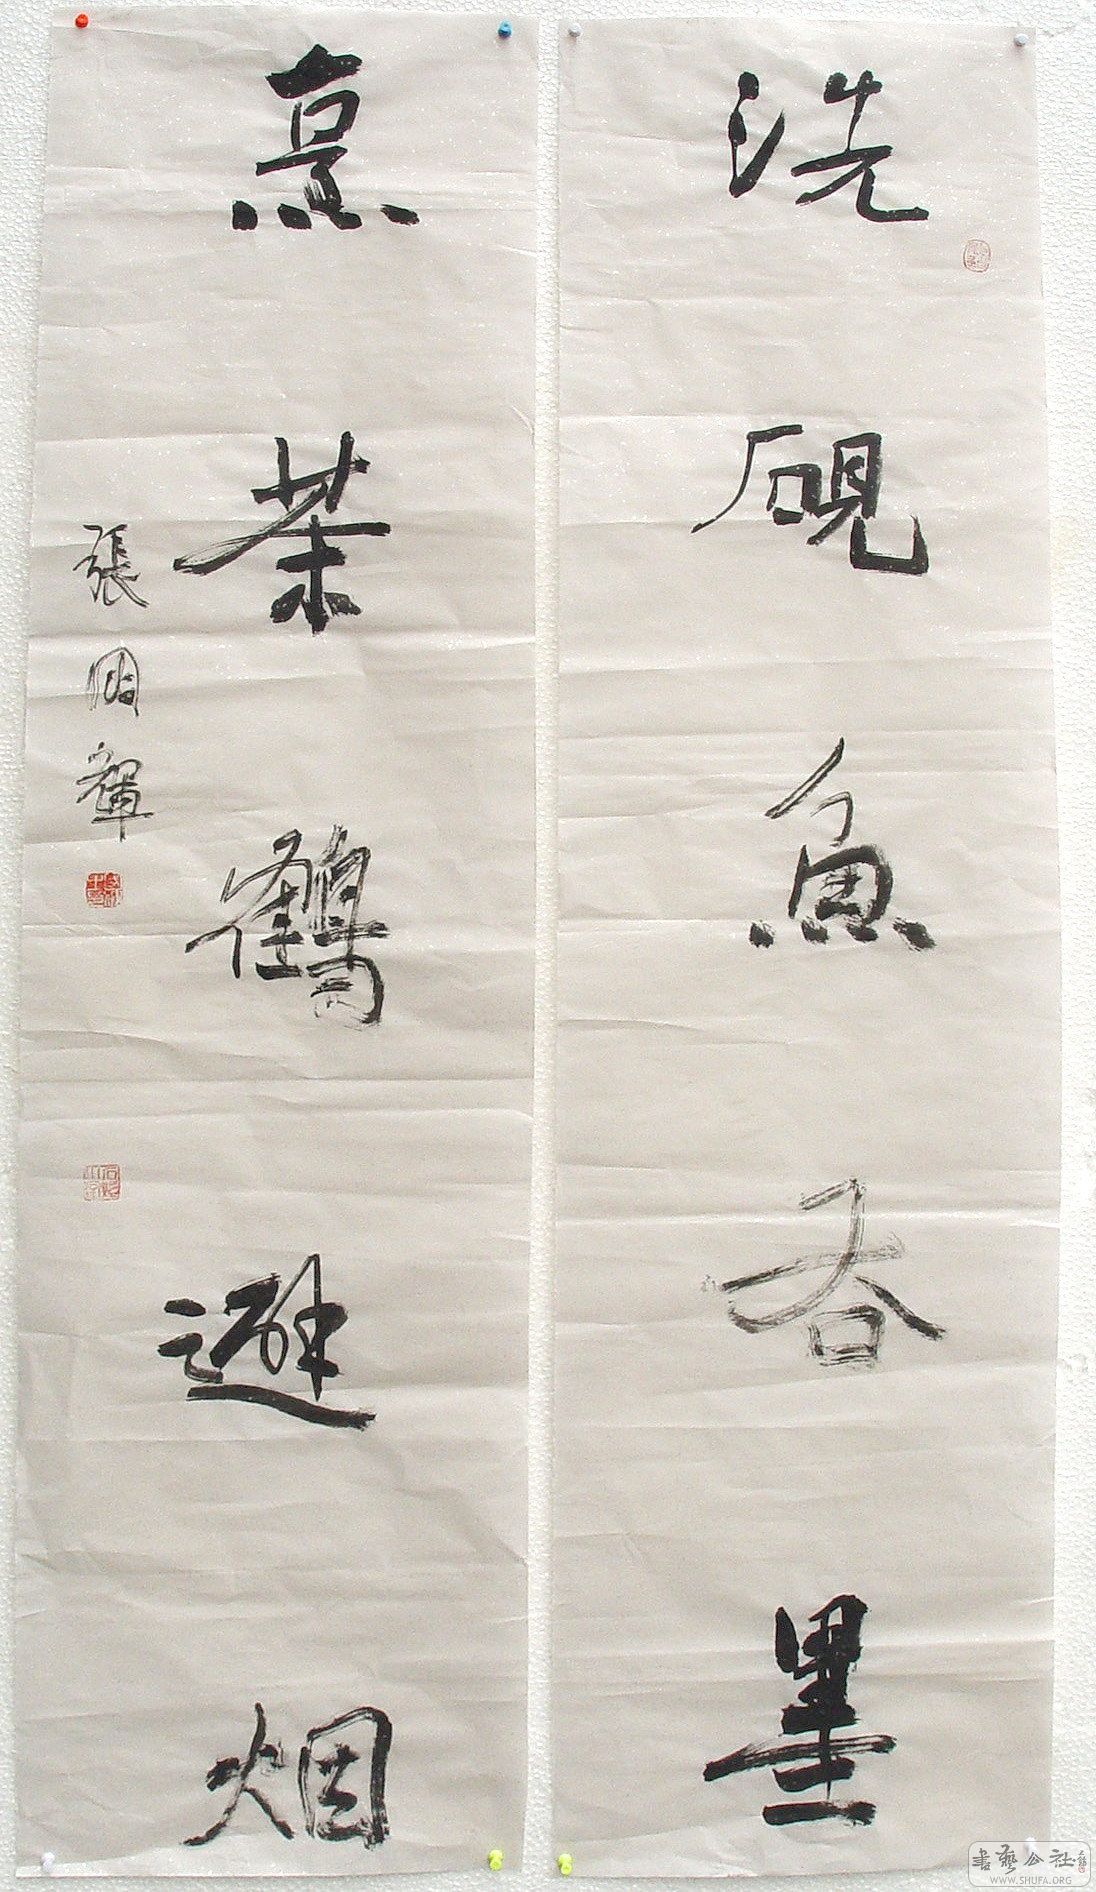 洗砚鱼吞墨
烹茶鹤避烟
張国輝
書藝公社
WWW.SHUFA.ORG